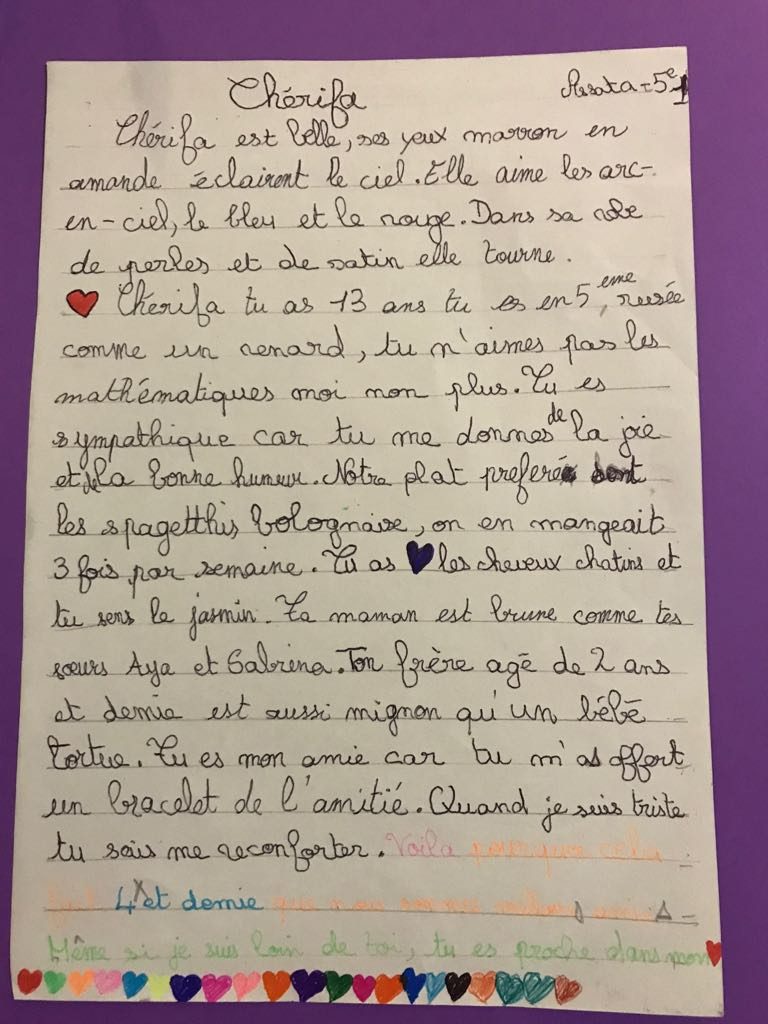 Chérifa
Assata - 5e1
Chérifa est belle, ses yeux marron en
amande éclairent le ciel. Elle aime les arc-
en-ciel, le bleu et le rouge. Dans sa robe
de perles et de satin elle tourne.
Chérifa tu as 13 ans tu es en 5 eme, rusée
comme un renard, tu n'aimes pas les
mathématiques moi non plus. Tu es
sympathique car tu me donnes de la joie
et de la bonne humeur. Notre plat preferé sont
les spagetthis bolognaise, on en mangeait
3 fois par semaine. Tu as les cheveux chatins et
tu sens le jasmin. Ta maman est brune comme tes
sœurs Aya et Sabrina. Ton frère agé de 2 ans
et demie est aussi mignon qu'un bébé
tortue. Tu es mon amie car tu m'as offert
un bracelet de l'amitié. Quand je suis triste
tu sais me reconforter. Voila pourquoi cela
fait 4 et demie que nous sommes meilleures amies
Même si je suis loin de toi, tu es proche dans mon